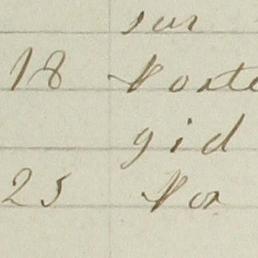 sur
18 Norte
gid
25 Nor